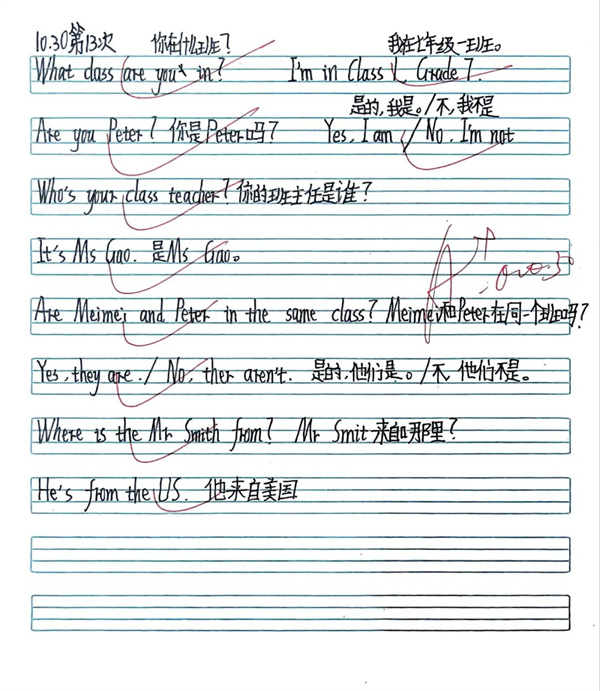 10.30第13次 你在什么班? 我在七年级一班。
What class are you in? I'm in Class 1, Grade 7.
是的,我是。/不,我不是
Are you Peter? 你是Peter吗? Yes, I am / No, I'm not
Who's your class teacher? 你的班主任是谁?
It's Ms Gao. 是Ms Gao。
A+
Are Meimei and Peter in the same class? Meimei和Peter在同一个班吗?
Yes, they are. / No, ther aren't. 是的,他们是。/不,他们不是。
Where is the Mr Smith from? Mr Smit来自哪里?
He's from the US. 他来自美国